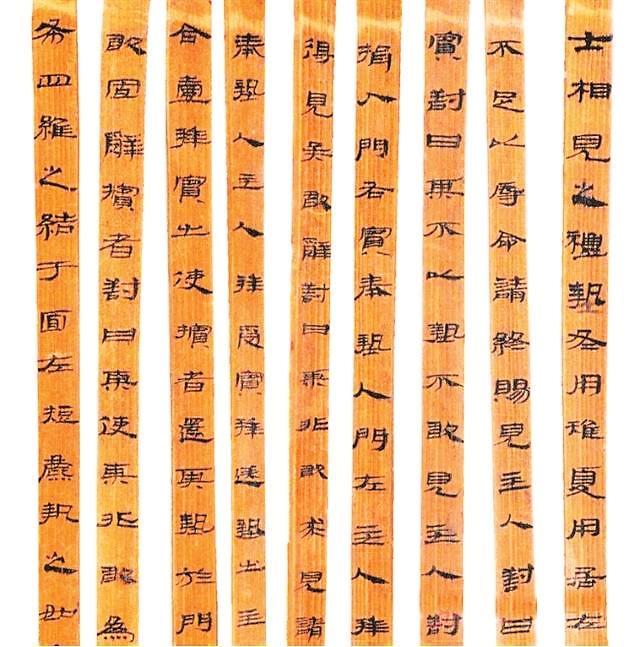 士相見之禮摯冬用雉夏用居左
不足以辱命請終賜見主人對曰
賓對曰某不以摯不敢見主人對
揖入門右賓奉摯入門左主人拜
得見矣敢辭對曰某非敢求見請
奉摯入主人拜受賓拜送摯出主
合壹拜賓出使擯者還其摯於門
敢固辭擯者對曰某使某非敢為
布四維之結于面左脰麃執之如